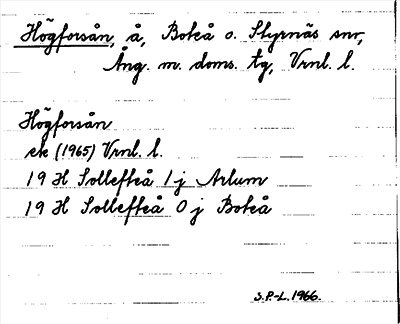 Högforsån, å, Boteå o. Styrnäs snr,
Ång. m. doms. tg, Vrnl. l.
Högforsån
ek (1965) Vrnl. l.
19 H Sollefteå 1 j Arlum
19 H Sollefteå 0 j Boteå
S.P.-L. 1966.